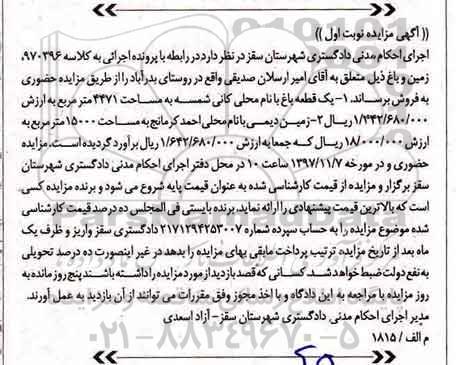 (( آگهی مزایده نوبت اول ))
اجرای احکام مدنی دادگستری شهرستان سقز در نظر دارد در رابطه با پرونده اجرائی به کلاسه ۹۷۰۳۹۶،
زمین و باغ ذیل متعلق به آقای امیر ارسلان صدیقی واقع در روستای بدرآباد را از طریق مزایده حضوری
به فروش برساند. ۱- یک قطعه باغ با نام محلی کانی شمسه به مساحت ۴۴۷۱ متر مربع به ارزش
۱/۳۴۲/۶۸۰/۰۰۰ ریال ۲- زمین دیمی با نام محلی احمد کرمانج به مساحت ۱۵۰۰۰ متر مربع به
ارزش ۱۸/۰۰۰/۰۰۰ ریال که جمعا به ارزش ۱/۶۴۲/۶۸۰/۰۰۰ ریال برآورد گردیده است. مزایده
حضوری و در مورخه ۱۳۹۷/۱۱/۷ ساعت ۱۰ در محل دفتر اجرای احکام مدنی دادگستری شهرستان
سقز برگزار و مزایده از قیمت کارشناسی شده به عنوان قیمت پایه شروع می شود و برنده مزایده کسی
است که بالاترین قیمت پیشنهادی را ارائه نماید. برنده بایستی فی المجلس ده درصد قیمت کارشناسی
شده موضوع مزایده را به حساب سپرده شماره ۲۱۷۱۲۹۴۲۵۳۰۰۷ دادگستری سقز واریز و ظرف یک
ماه بعد از تاریخ مزایده ترتیب پرداخت مابقی بهای مزایده را بدهد در غیر اینصورت ده درصد تحویلی
به نفع دولت ضبط خواهد شد. کسانی که قصد بازدید از مورد مزایده را داشته باشند پنج روز مانده به
روز مزایده با مراجعه به این دادگاه و با اخذ مجوز وفق مقررات می توانند از آن بازدید به عمل آورند.
مدیر اجرای احکام مدنی دادگستری شهرستان سقز - آزاد اسعدی
م الف / ۱۸۱۵
۰۲۱-۸۸۳۴۹۶۷۰-۵